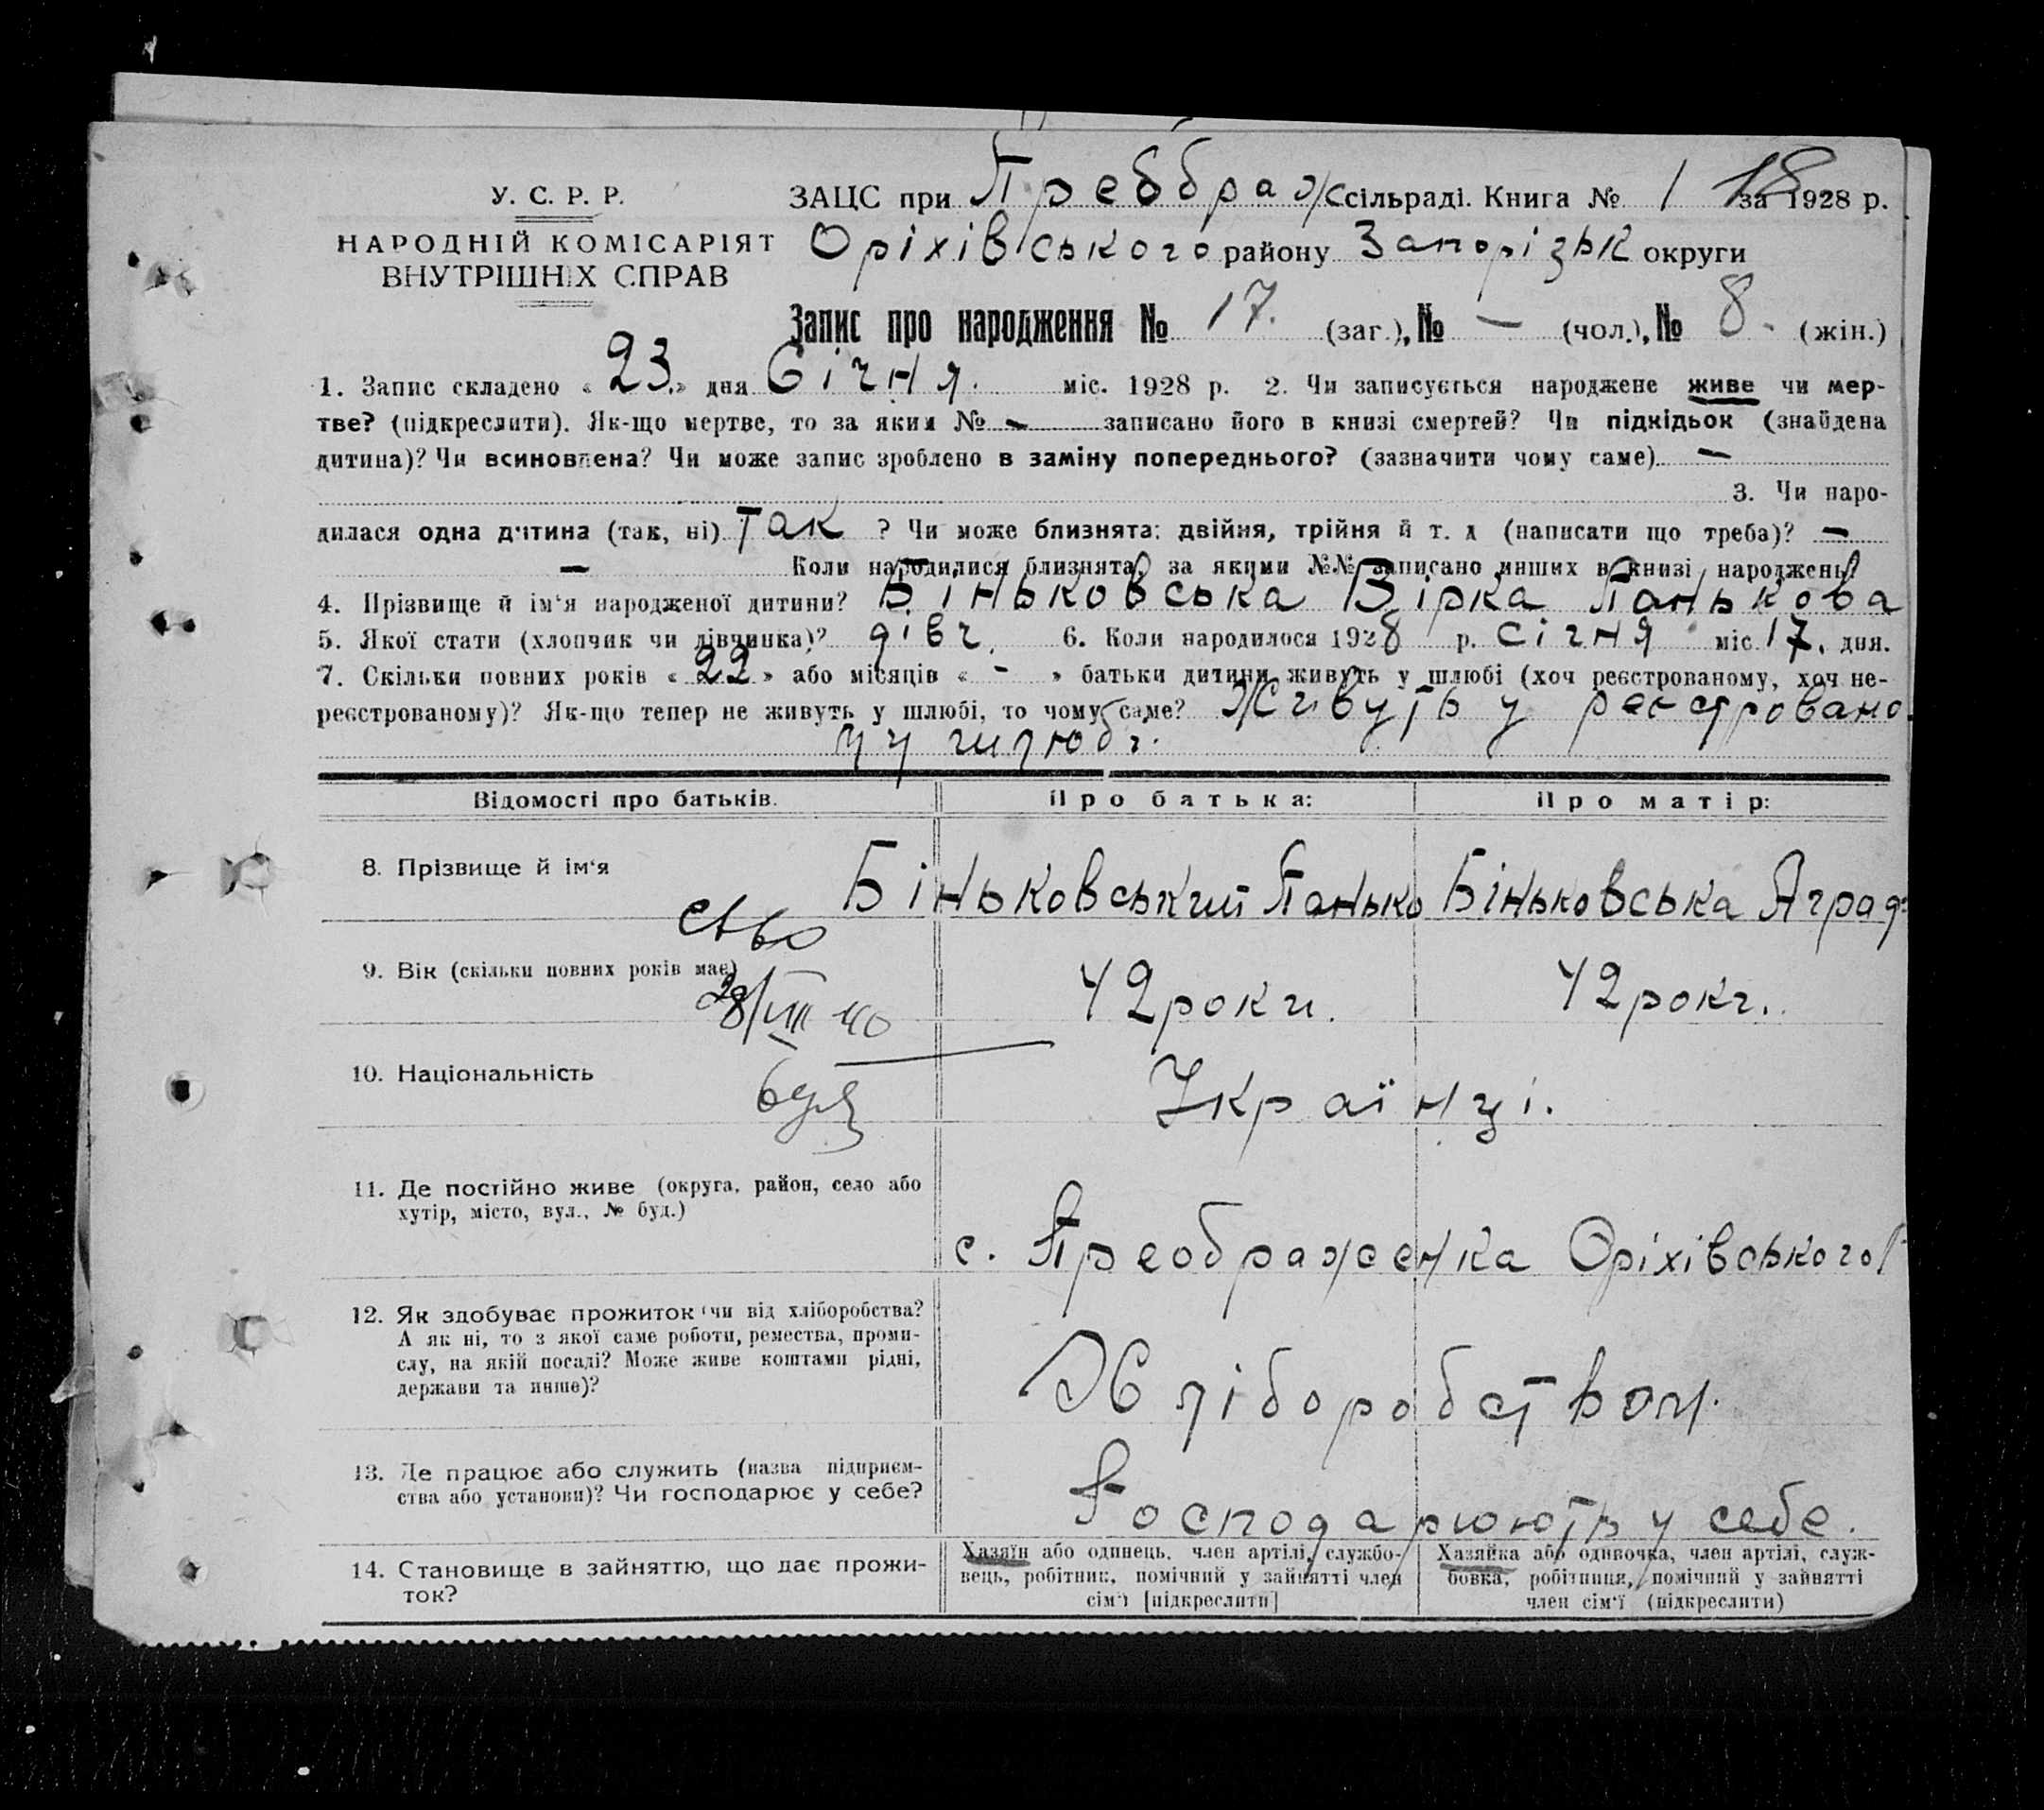 18
У. С. Р. Р.
НАРОДНІЙ КОМІСАРІЯТ
ВНУТРІШНІХ СПРАВ
ЗАЦС при Преображ сільраді. Книга № 1 за 1928 р.
Оріхівського району Запорізьк округи
Запис про народження № 17. (заг.), № — (чол.), № 8. (жін.)
1. Запис складено « 23 » дня Січня. міс. 1928 р. 2. Чи записується народжене живе чи мер-
тве? (підкреслити). Як-що мертве, то за яким № — записано його в книзі смертей? Чи підкідьок (знайдена
дитина)? Чи всиновлена? Чи може запис зроблено в заміну попереднього? (зазначити чому саме) —
3. Чи наро-
дилася одна дитина (так, ні) так ? Чи може близнята: двійня, трійня й т. д (написати що треба)? —
— Коли народилися близнята, за якими №№ записано инших в книзі народжень?
4. Прізвище й ім'я народженої дитини? Біньковська Вірка Панькова
5. Якої стати (хлопчик чи дівчинка)? дівч. 6. Коли народилося 1928 р. січня міс. 17. дня.
7. Скільки повних років « 22 » або місяців « - » батьки дитини живуть у шлюбі (хоч реєстрованому, хоч не-
реєстрованому)? Як-що тепер не живуть у шлюбі, то чому саме? Живуть у реєстровано
му шлюбі.
Відомості про батьків. Про батька: Про матір:
8. Прізвище й ім'я Біньковський Панько Біньковська Аград
св-во
9. Вік (скільки повних років має) 42 роки. 42 роки.
28/VIII 40
10. Національність Українці.
11. Де постійно живе (округа, район, село або
хутір, місто, вул., № буд.)
с. Преображенка Оріхівського
12. Як здобуває прожиток чи від хліборобства?
А як ні, то з якої саме роботи, ремества, проми-
слу, на якій посаді? Може живе коштами рідні,
держави та инше)?
Хліборобством.
13. Де працює або служить (назва підприєм-
ства або установи)? Чи господарює у себе?
Господарюють у себе.
14. Становище в зайняттю, що дає прожи-
ток?
Хазяїн або одинець, член артілі, службо-
вець, робітник, помічний у зайнятті член
сім'ї [підкреслити]
Хазяйка або одиночка, член артілі, служ-
бовка, робітниця, помічний у зайнятті
член сім'ї (підкреслити)